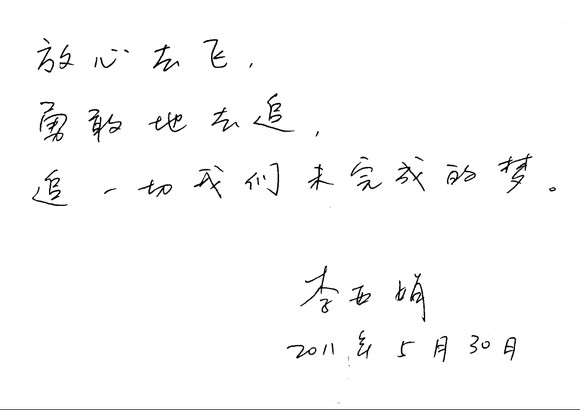 放心去飞，
勇敢地去追，
追一切我们未完成的梦。
李西娟
2011年5月30日